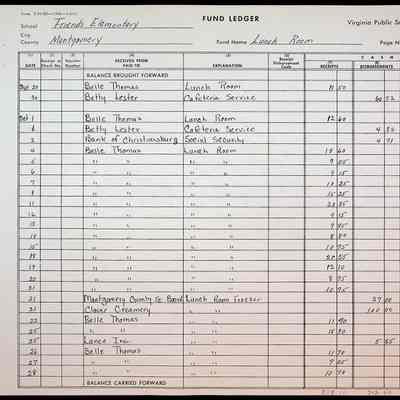 FUND LEDGER
Virginia Public Sc
School Friends Elementary
City
County Montgomery
Fund Name Lunch Room
Page N
(1) (2) (3) (4) (5) (6) (7)
DATE Receipt or Check No. Voucher Number RECEIVED FROM PAID TO EXPLANATION Receipt Disbursement Code RECEIPTS CASH DISBURSEMENTS
BALANCE BROUGHT FORWARD
29 Belle Thomas Lunch Room 11 50
30 Betty Lester Cafeteria Service
Oct 1 Belle Thomas Lunch Room 12 60
Betty Lester Cafeteria Service 4
Bank of Christiansburg Social Security 4 71
4 Belle Thomas Lunch Room 60
5 " " " " 9 05
6 " " " " 9 15
7 " " " " 25
8 " " " " 15 25
11 " " " " 85
12 " " " " 9 15
" " " " 9
" " " " 8
15 " " " " 10 75
18 " " " "
19 " " " " 12 10
20 " " " " 8 75
21 " " " " 10 75
21 Montgomery County Sc Board Lunch Room Freezer 27 00
21 Clover Creamery 100
22 Belle Thomas 11 90
25 " "
25 Lance Inc. 5
26 Belle Thomas 11 70
27 " " 9
28 " " 10 70
BALANCE CARRIED FORWARD